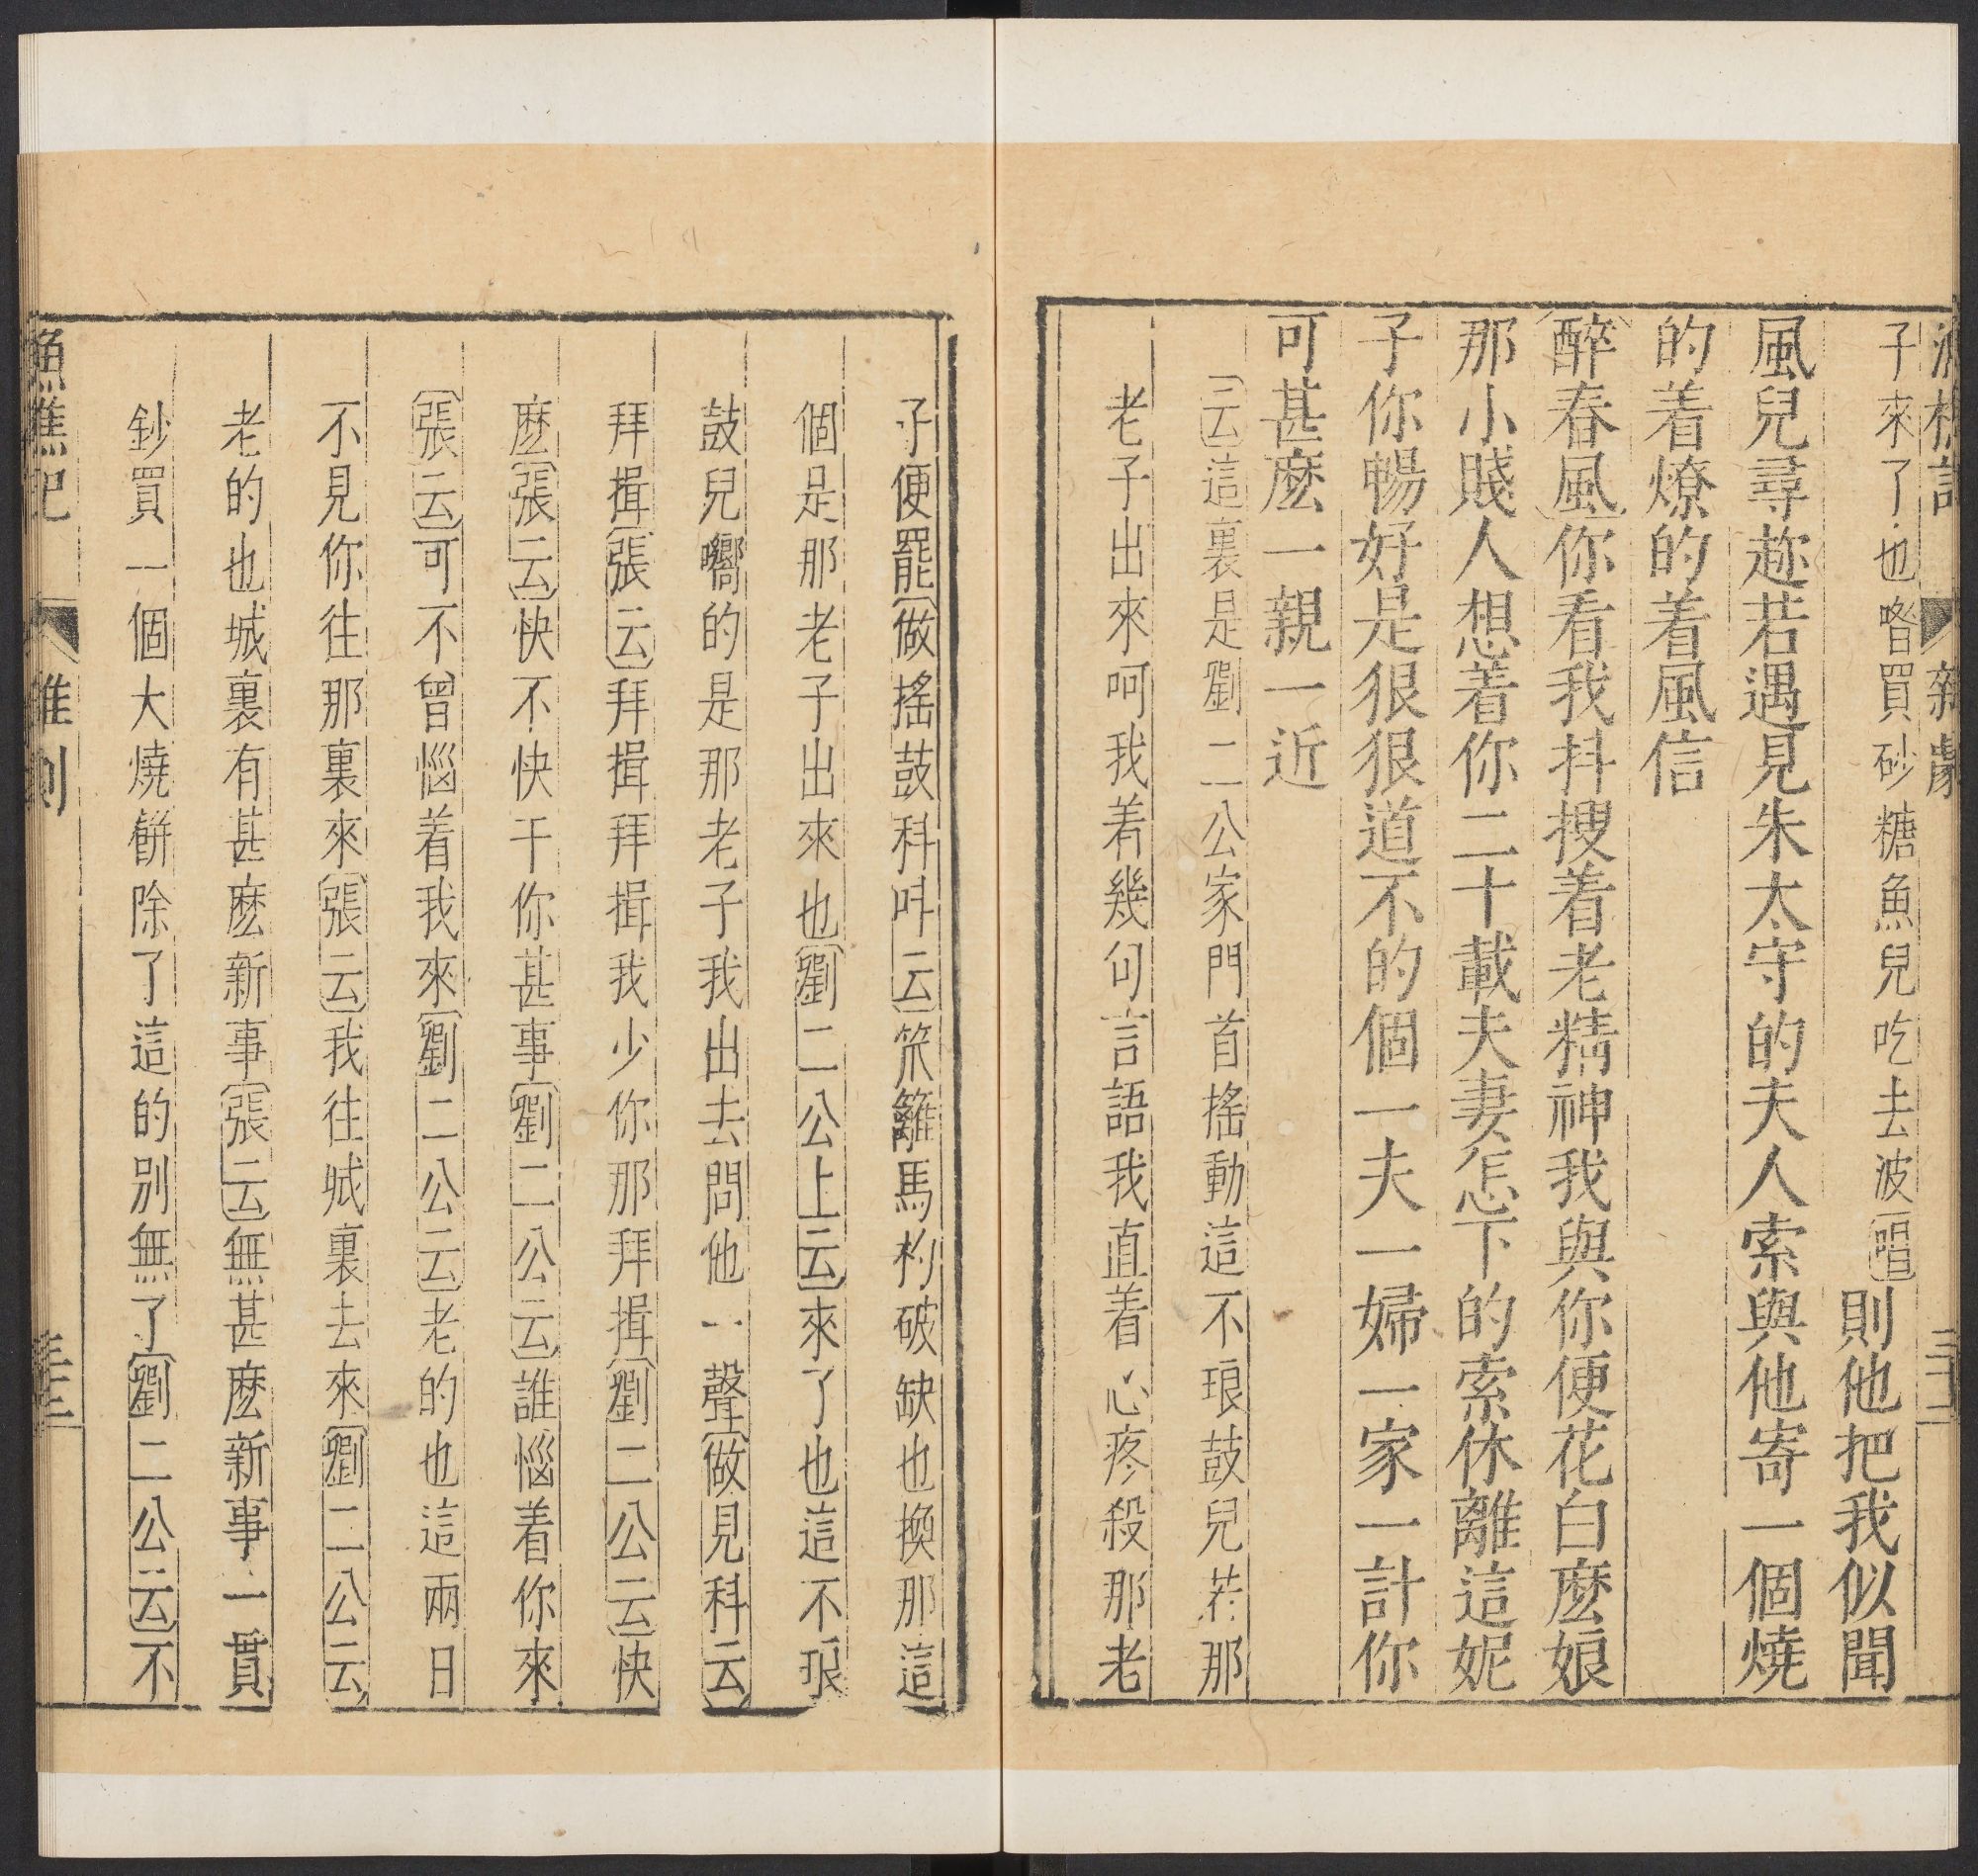 漁樵記 雜劇 三十二
子來了也喒買砂糖魚兒吃去波〔唱〕則他把我似聞
風兒尋趂若遇見朱太守的夫人索與他寄一個燒
的着燎的着風信
〔醉春風〕你看我抖搜着老精神我與你便花白麽娘
那小賤人想着你二十載夫妻怎下的索休離這妮
子你暢好是狠狠道不的個一夫一婦一家一計你
可甚麽一親一近
〔云〕這裏是劉二公家門首搖動這不琅鼓兒若那
老子出來呵我着幾句言語我直着心疼殺那老
子便罷〔做搖鼓科呌云〕笊籬馬杓破缺也換那這
個是那老子出來也〔劉二公上云〕來了也這不琅
鼓兒嚮的是那老子我出去問他一聲〔做見科云〕
拜揖〔張云〕拜揖拜揖我少你那拜揖〔劉二公云〕快
麽〔張云〕快不快干你甚事〔劉二公云〕誰惱着你來
〔張云〕可不曾惱着我來〔劉二公云〕老的也這兩日
不見你往那裏來〔張云〕我往城裏去來〔劉二公云〕
老的也城裏有甚麽新事〔張云〕無甚麽新事一貫
鈔買一個大燒餅除了這的別無了〔劉二公云〕不
魚樵記 雜劇